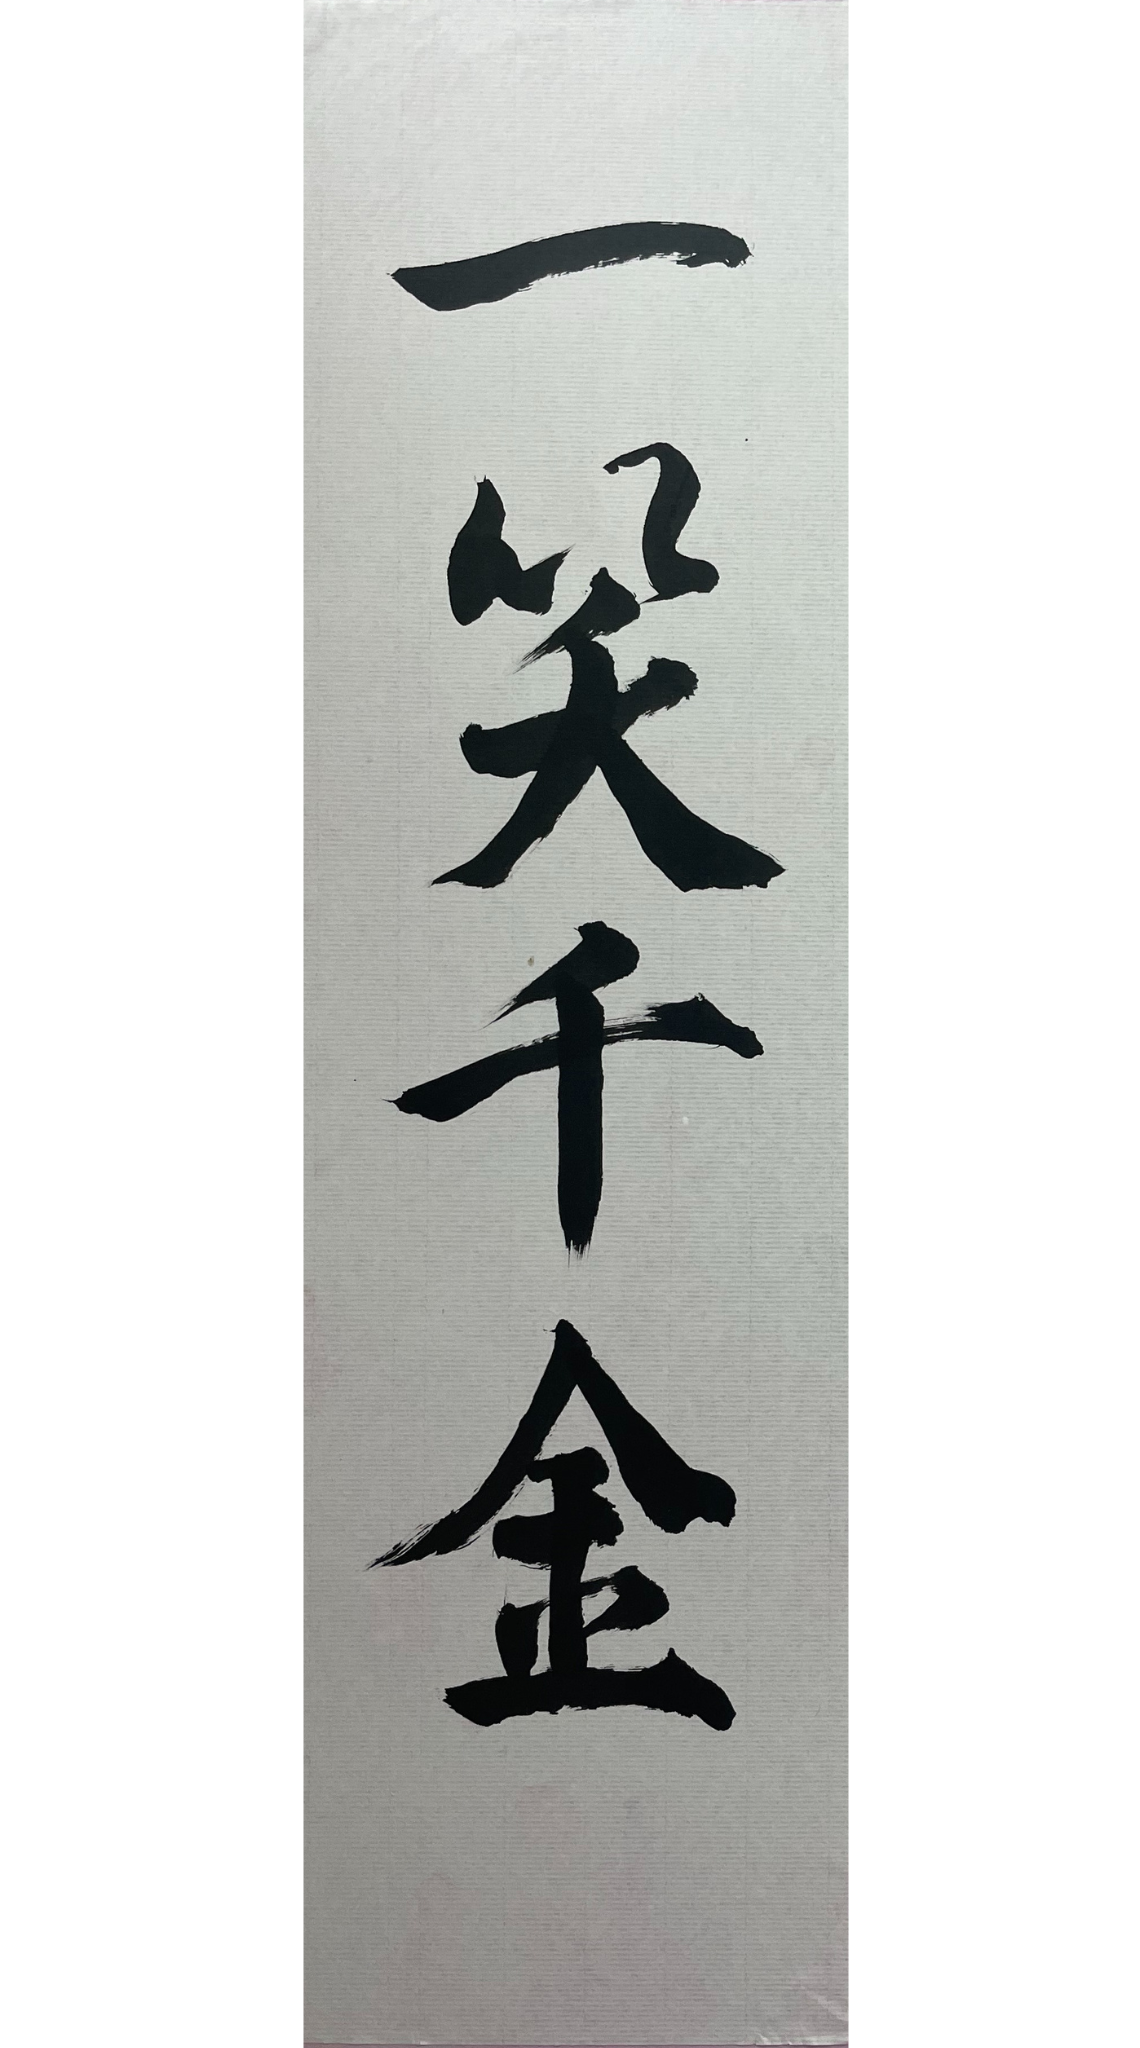 一笑千金